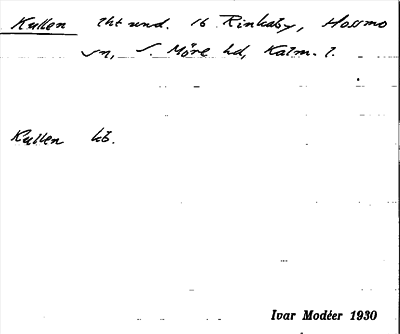 Kullen tht und. 16 Rinkaby, Hossmo
sn, S. Möre hd, Kalm. l.
Kullen kb.
Ivar Modéer 1930